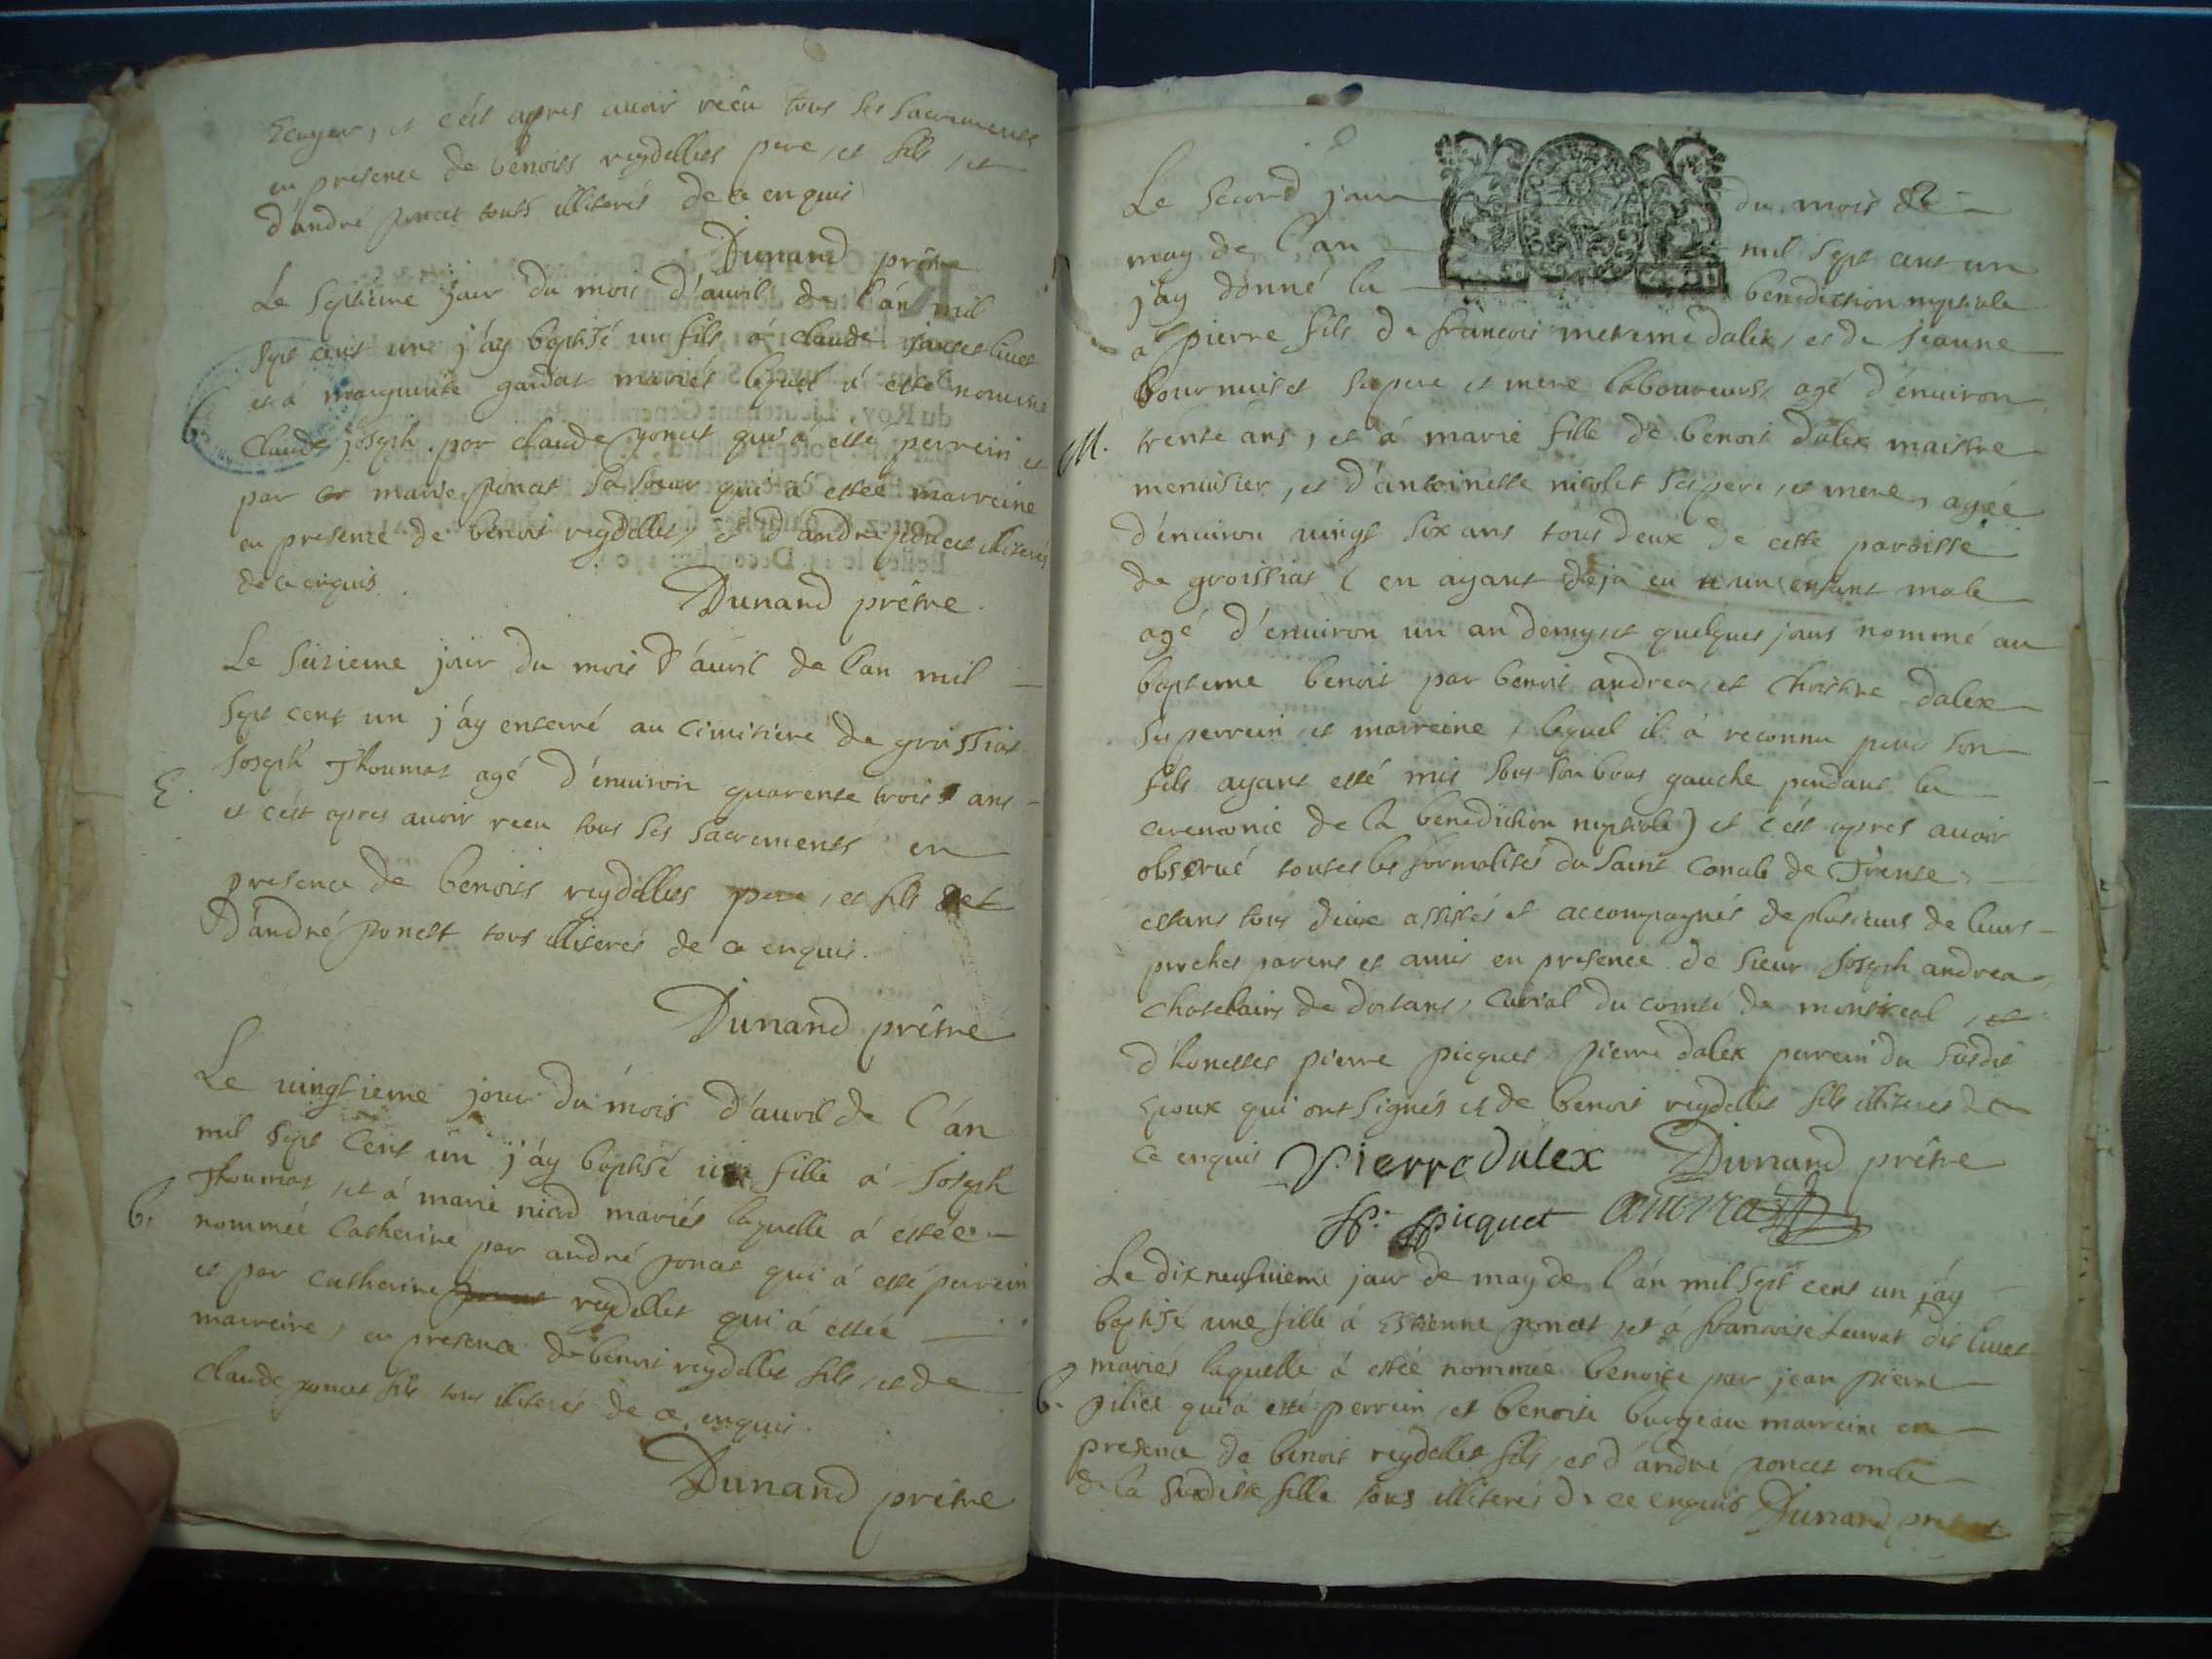 Ecuyer, et c'ést apres avoir recu tous ses Sacrements
en presence de benoits reydellet pere, et fils, et
d'andré poncet touts illiterés de ce enquis
Dunand prêtre
Le Septiéme jour du mois d'auvril de l'án mil
Sept cent une j'áy baptisé un fils á claude poncet
et á marguerite gardat mariés lequel á esté nommé
b. Claude joseph par claude poncet qui á esté perrein et
par marie poncet Sa Soeur qui á estée marreine
en presence de benoit reydellet, et d'andré poncet illiterés
de ce enquis.
Dunand prêtre.
Le Seizieme jour du mois d'áuvril de l'an mil
Sept cent un j'áy enterré au cimitiére de groissiat
E. Joseph Thoumas agé d'énuiron quarente trois ans
et c'ést apres avoir receu tous ses Sacrements en
presence de benoits reydellet pere, et fils et
d'andré poncet tous illiterés de ce enquis.
Dunand prêtre
Le uingtieme jour du mois d'auvril de l'án
mil Sept Cent un j'áy baptisé une fille á Joseph
Thoumas, et á marie niad mariés laquelle á estée
b. nommée Catherine par andré poncet qui á esté perrein
et par catherine reydellet qui á estée
marreine, en presence de benoit reydellet fils, et de
claude poncet fils tous illiterés de ce enquis.
Dunand prêtre
Le Second jour du mois de
may de l'an mil Sept cent un
j'áy donné la bénédiction nuptiale
á pierre fils de francois dalex, et de jeanne
Sespere et mere laboureurs, agé d'énuiron
M. trente ans, et á marie fille de benoit dalex maistre
menuisier, et d'antoinette nicolet Ses pere, et mere, agée
d'énuiron uingt Six ans tous deux de cette paroisse
de groissiat (en ayant deja eu un enfant male
agé d'énuiron un an demy, et quelques jours nommé au
bapteme benoit par benoit andrea, et christine dalex
Ses perrein, et marreine, lequel il á reconnu pour Son
fils ayant esté mis Sous Son bras gauche pendant la
ceremonie de la benediction nuptiale) et c'ést apres avoir
obserué toutes les formalités du Saint Concile de Trente,
estans tous deux assistés et accompagnés de plusieurs de leurs
proches parens et amis en presence de Sieur Joseph andrea
chatelain de dortans, Curial du comté de montreal, et
d'honestes pierre picquet, pierre dalex perrein du Susdit
Epoux qui ont Signés et de benoit reydellet fils illiteres de
ce enquis Pierre dalex Dunand prêtre
Picquet andrea
Le dix neufuieme jour de may de l'án mil Sept cent un j'áy
baptisé une fille á Estienne poncet, et á francoise
mariés laquelle á estée nommée benoite par jean pierre
b. pilict qui á esté perrein, et benoite marreine en
presence de benoit reydellet fils, et d'ándré poncet oncle
de la Susdite fille tous illiterés de ce enquis Dunand prêtre